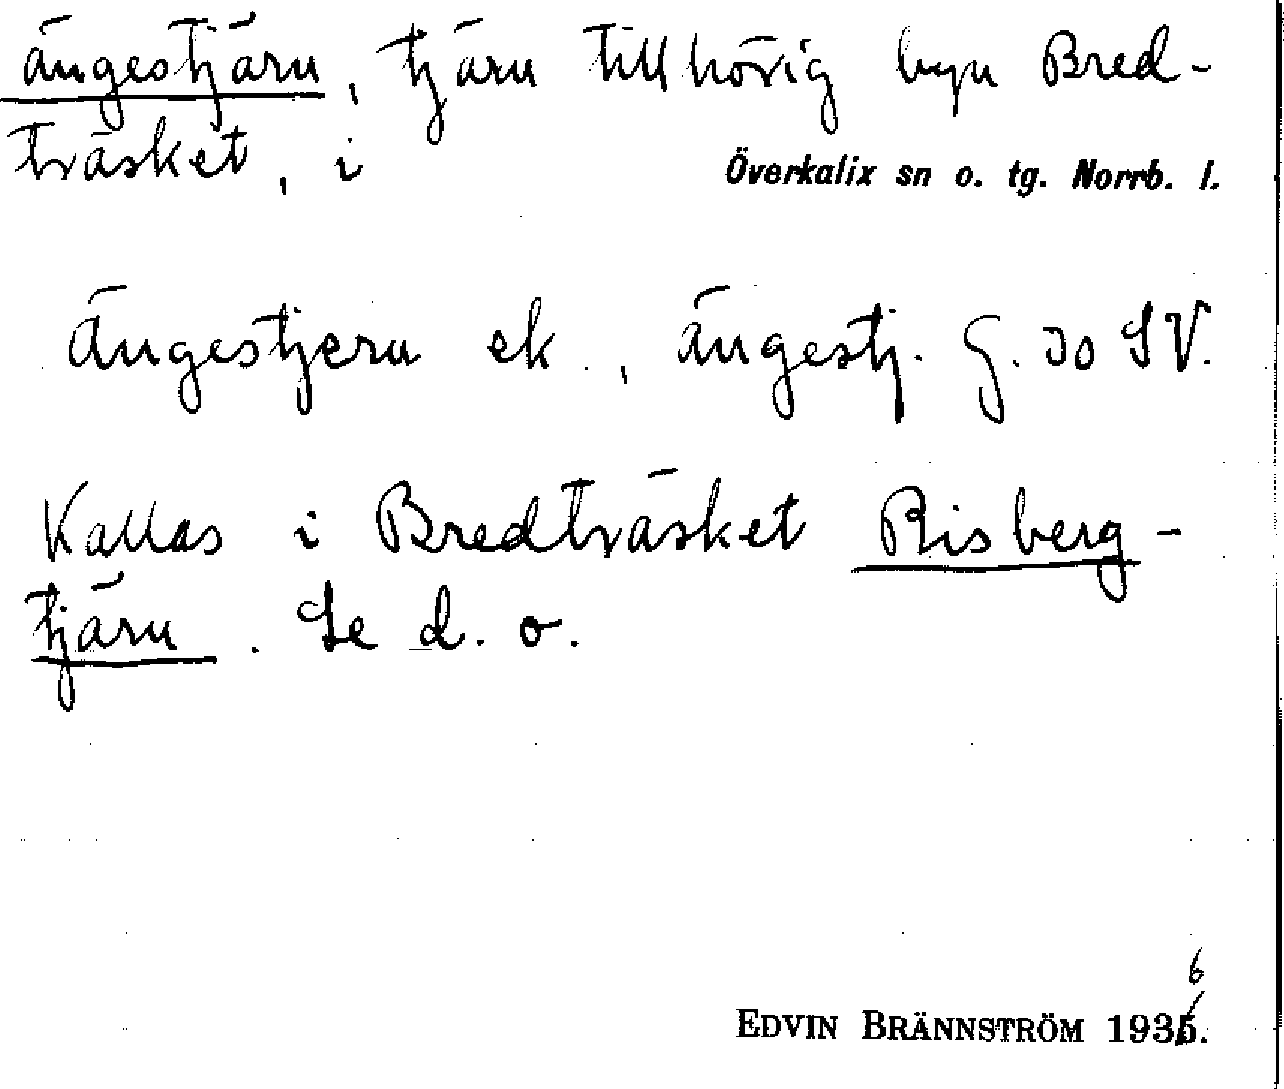 ängestjärn, tjärn tillhörig byn Bred-
träsket, i Överkalix sn o. tg. Norrb. l.
Ängestjern ek., ängestj. G. 30 SV.
Kallas i Bredträsket Risberg-
tjärn. Se d. o.
6
EDVIN BRÄNNSTRÖM 1935.